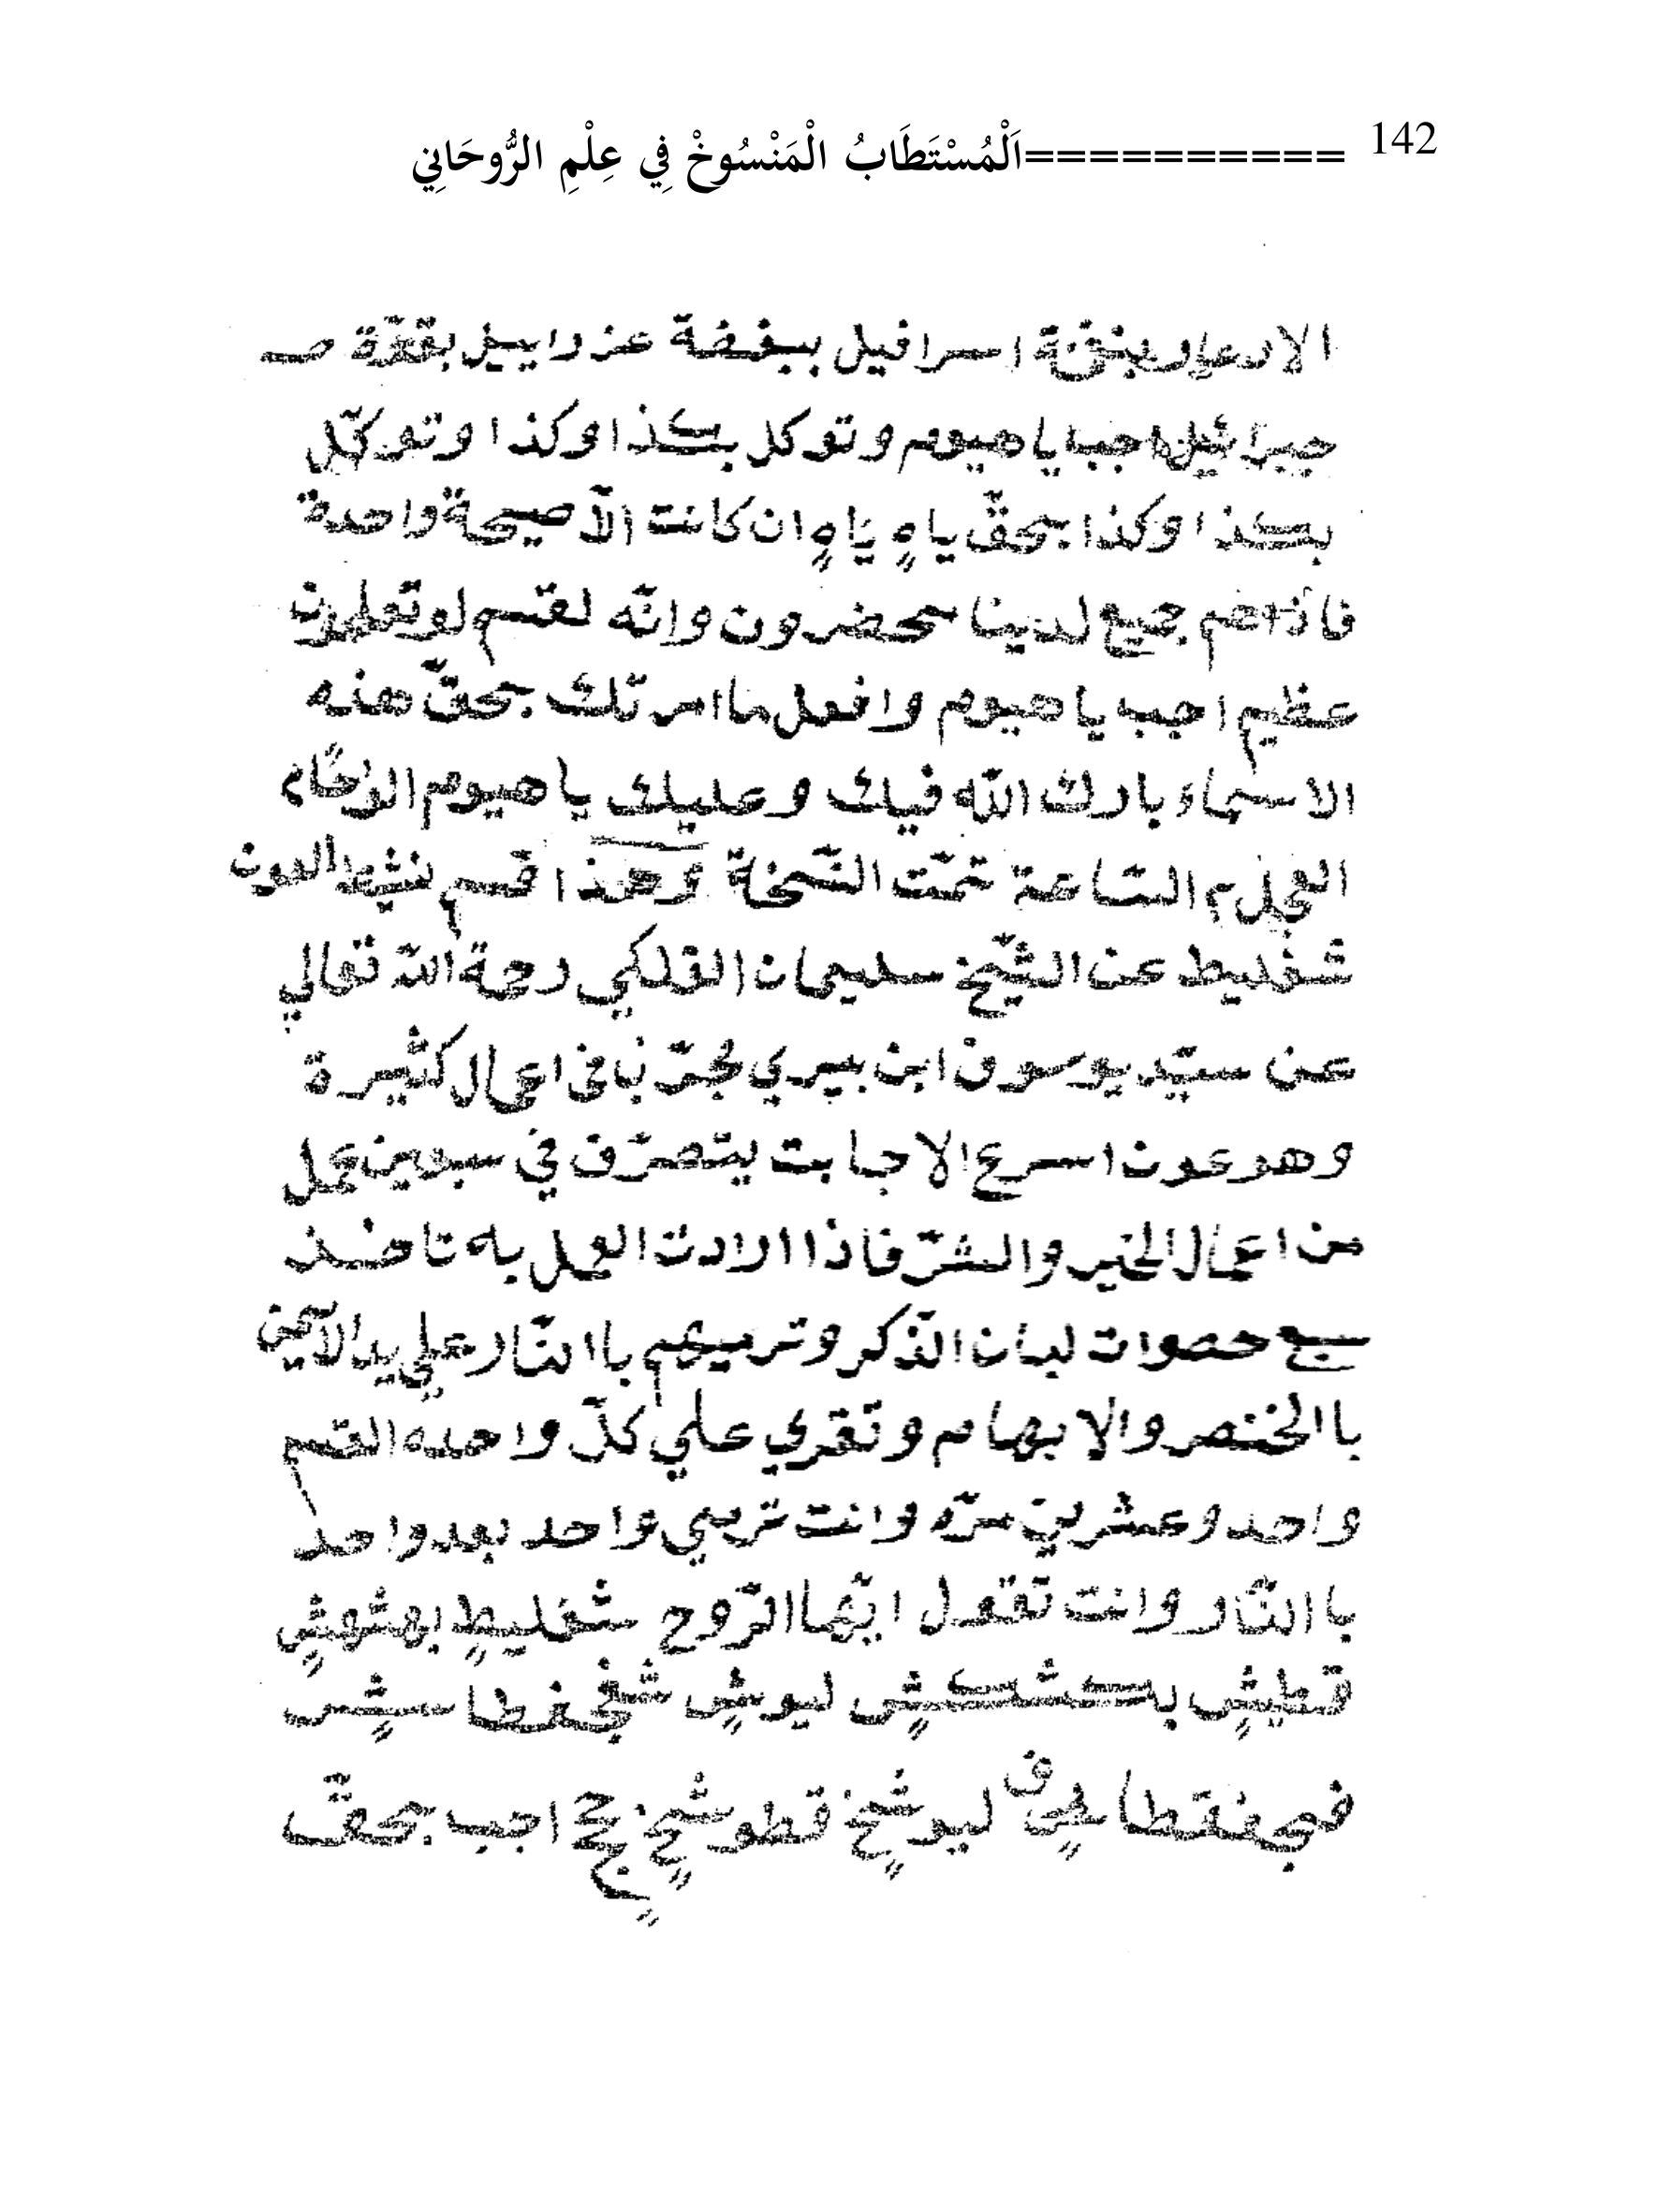 142 ==========اَلْمُسْتَطَابُ الْمَنْسُوخْ فِي عِلْمِ الرُّوحَانِي
اسرافيل ببغضة عزراييل
جبرائيل اجب يا هيوم وتوكل بكذا وكذا وتوكّل
بكذا وكذا بحقّ ياهٍ يَاهٍ ان كانت الّا صيحة واحدة
فاذاهم جميع لدينا محضرون وانّه لقسم لوتعلمون
عظيم اجب يا هيوم وافعل ما امرتك بحقّ هذه
الاسماء بارك الله فيك وعليك يا هيوم
العجل م السّاعة تمّت النّسخة وهذا قسم العون
شغليط عن الشّيخ سليمان الفلكي رحمة الله تعالي
عن سيّد يوسوف ابن بيري مجرّبا في اعمال كثيرة
وهو عون اسرع الاجابت يتصرّف في سبعين عمل
من اعمال الخير والشّرّ فاذا ارادت العمل به تاخذ
سبع حصوات لبان الذّكر وترميهم باالنّار علي يد الايمن
باالخنصر والابهام وتقري علي كلّ واحده القسم
واحد وعشرين مرّه وانت ترمي واحد بعد واحد
باالنّار وانت تقول ايّها الرّوح شغليطٍ بهشهشٍ
قطيشٍ بكشكشٍ ليوشٍ
ليوشخٍ قطوشخٍ اجب بحقّ